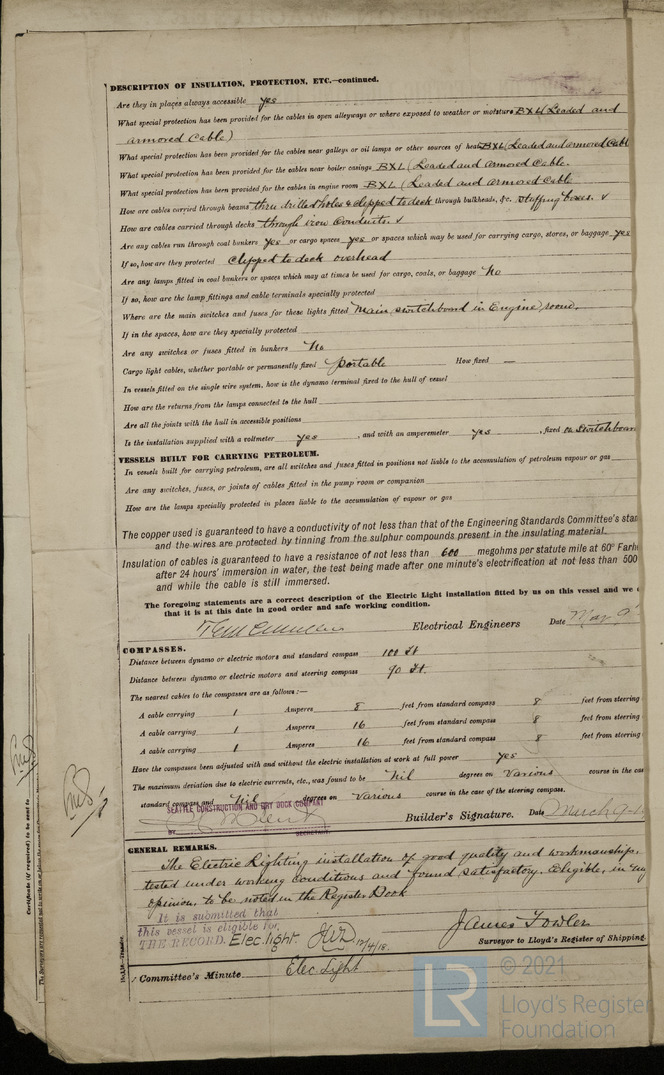 DESCRIPTION OF INSULATION, PROTECTION, ETC.—continued.
Are they in places always accessible yes
What special protection has been provided for the cables in open alleyways or where exposed to weather or moisture BXL (Leaded and
armored Cable)
What special protection has been provided for the cables near galleys or oil lamps or other sources of heat BXL (Leaded and armored Cabl
What special protection has been provided for the cables near boiler casings BXL (Leaded and armored Cable.
What special protection has been provided for the cables in engine room BXL (Leaded and armored Cable
How are cables carried through beams thru drilled holes & clipped to deck through bulkheads, &c. Stuffing boxes. ✓
How are cables carried through decks through iron conduits. ✓
Are any cables run through coal bunkers yes or cargo spaces yes or spaces which may be used for carrying cargo, stores, or baggage yes
If so, how are they protected clipped to deck overhead
Are any lamps fitted in coal bunkers or spaces which may at times be used for cargo, coals, or baggage No
If so, how are the lamp fittings and cable terminals specially protected
Where are the main switches and fuses for these lights fitted Main switchboard in Engine room.
If in the spaces, how are they specially protected
Are any switches or fuses fitted in bunkers No
Cargo light cables, whether portable or permanently fixed Portable How fixed —
In vessels fitted on the single wire system, how is the dynamo terminal fixed to the hull of vessel
How are the returns from the lamps connected to the hull
Are all the joints with the hull in accessible positions
Is the installation supplied with a voltmeter yes, and with an amperemeter yes, fixed on Switchboar
VESSELS BUILT FOR CARRYING PETROLEUM.
In vessels built for carrying petroleum, are all switches and fuses fitted in positions not liable to the accumulation of petroleum vapour or gas
Are any switches, fuses, or joints of cables fitted in the pump room or companion
How are the lamps specially protected in places liable to the accumulation of vapour or gas
The copper used is guaranteed to have a conductivity of not less than that of the Engineering Standards Committee's star
and the wires are protected by tinning from the sulphur compounds present in the insulating material.
Insulation of cables is guaranteed to have a resistance of not less than 600 megohms per statute mile at 60° Farh
after 24 hours' immersion in water, the test being made after one minute's electrification at not less than 500
and while the cable is still immersed.
The foregoing statements are a correct description of the Electric Light installation fitted by us on this vessel and we
that it is at this date in good order and safe working condition.
Electrical Engineers Date May 9
COMPASSES.
Distance between dynamo or electric motors and standard compass 100 Ft
Distance between dynamo or electric motors and steering compass 90 Ft.
The nearest cables to the compasses are as follows:—
A cable carrying 1 Amperes 8 feet from standard compass 8 feet from steering
A cable carrying 1 Amperes 16 feet from standard compass 8 feet from steering
A cable carrying 1 Amperes 16 feet from standard compass 8 feet from steering
Have the compasses been adjusted with and without the electric installation at work at full power yes
The maximum deviation due to electric currents, etc., was found to be Nil degrees on Various course in the cas
standard compass and Nil degrees on Various course in the case of the steering compass.
SEATTLE CONSTRUCTION AND DRY DOCK COMPANY
BY SECRETARY.
Builder's Signature. Date March 9-1
GENERAL REMARKS.
The Electric Lighting installation of good quality and workmanship.
tested under working conditions and found satisfactory. Eligible, in my
opinion, to be noted in the Register Book
It is submitted that
this vessel is eligible for
THE RECORD. Elec. light.
12/4/18.
James Fowler
Surveyor to Lloyd's Register of Shipping.
Committee's Minute Elec Light
Certificate (if required) to be sent to
LR © 2021
Lloyd's Register
Foundation